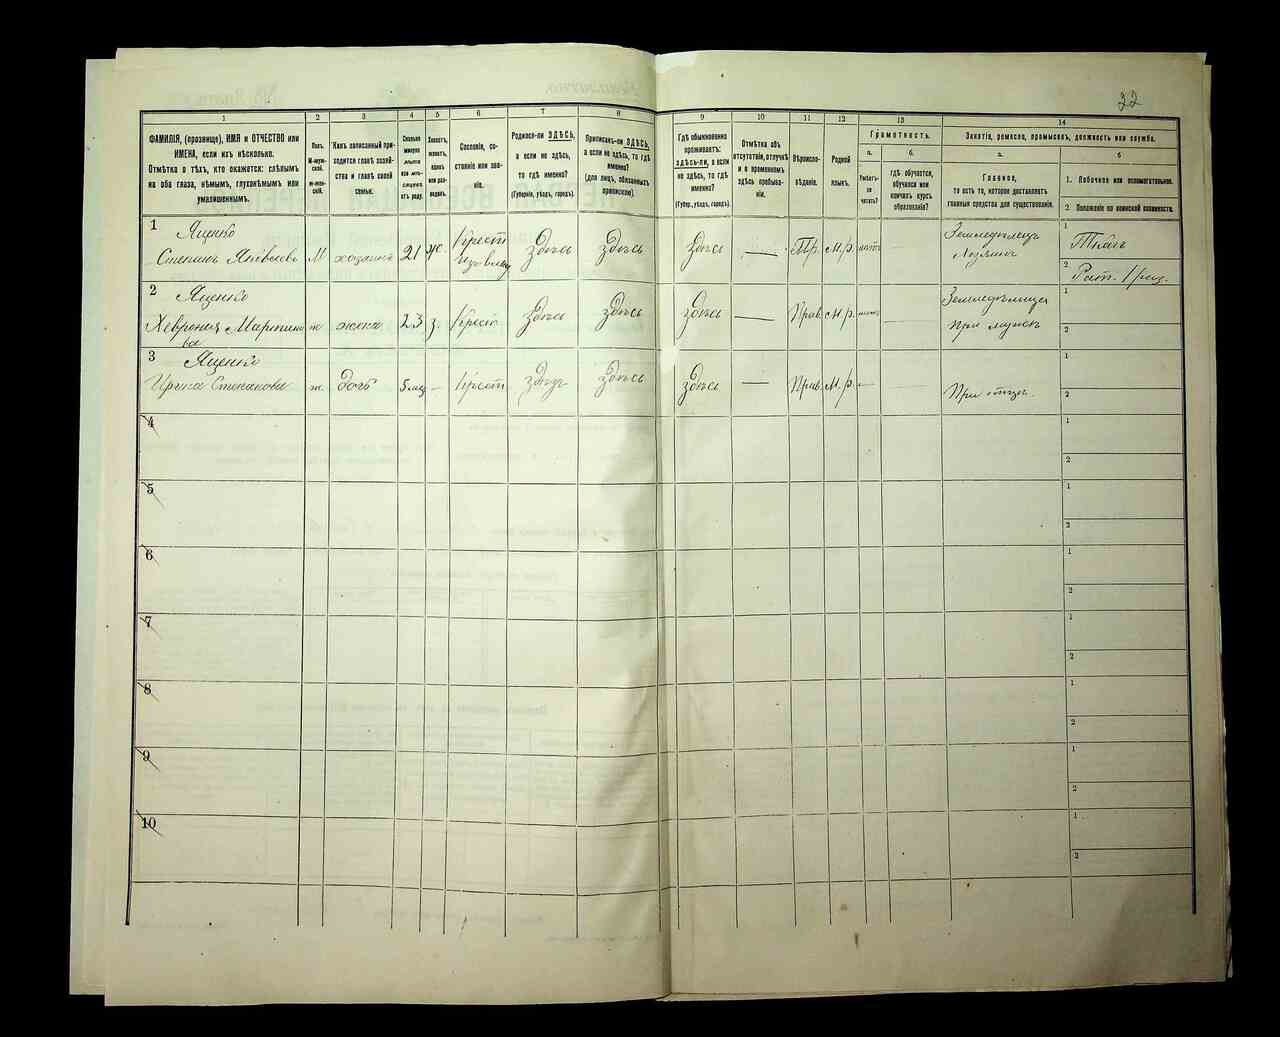 22
1
2
3
4
5
6
7
8
9
10
11
12
13
14
ФАМИЛІЯ, (прозвище), ИМЯ и ОТЧЕСТВО или
ИМЕНА, если ихъ нѣсколько.
Отмѣтка о тѣхъ, кто окажется: слѣпымъ
на оба глаза, нѣмымъ, глухонѣмымъ или
умалишеннымъ.
Полъ.
М-муж-
ской.
ж-жен-
скій.
Какъ записанный при-
ходится главѣ хозяй-
ства и главѣ своей
семьи.
Сколько
минуло
лѣтъ
или мѣ-
сяцевъ
отъ роду.
Холостъ,
женатъ,
вдовъ
или раз-
веденъ.
Сословіе, со-
стояніе или зва-
ніе.
Родился-ли ЗДѢСЬ,
а если не здѣсь,
то гдѣ именно?
(Губернія, уѣздъ, городъ).
Приписанъ-ли ЗДѢСЬ,
а если не здѣсь, то гдѣ
именно?
(для лицъ, обязанныхъ
припискою).
Гдѣ обыкновенно
проживаетъ:
ЗДѢСЬ-ЛИ, а если
не здѣсь, то гдѣ
именно?
(Губер., уѣздъ, городъ).
Отмѣтка объ
отсутствіи, отлучкѣ
и о временномъ
здѣсь пребыва-
ніи.
Вѣроиспо-
вѣданіе.
Родной
языкъ.
Грамотность.
а.
Умѣетъ-
ли
читать?
б.
гдѣ обучается,
обучался или
кончилъ курсъ
образованія?
Занятіе, ремесло, промыселъ, должность или служба.
а.
Главное,
то есть то, которое доставляетъ
главныя средства для существованія.
б
1. Побочное или вспомогательное.
2. Положеніе по воинской повинности.
1
Яценко
Степанъ Яковлевъ
М
хозяинъ
21
ж.
Крест
здѣсь
здѣсь
здѣсь
—
Пр.
М.р.
нѣтъ
—
Земледѣлецъ
Хозяинъ
1
Ткачъ
2
Рат. 1 раз.
2
Яценко
Хеврония Мартино
ва
ж
жена
23
з.
Крест
здѣсь
здѣсь
здѣсь
—
Прав.
М.р.
нѣтъ
Земледѣлица
При мужѣ
1
2
3
Яценко
Ирина Степанова
ж
дочь
5 мѣс
—
Крест
здѣсь
здѣсь
здѣсь
—
Прав.
М.р.
—
При отцѣ.
1
2
4
1
2
5
1
2
6
1
2
7
1
2
8
1
2
9
1
2
10
1
2